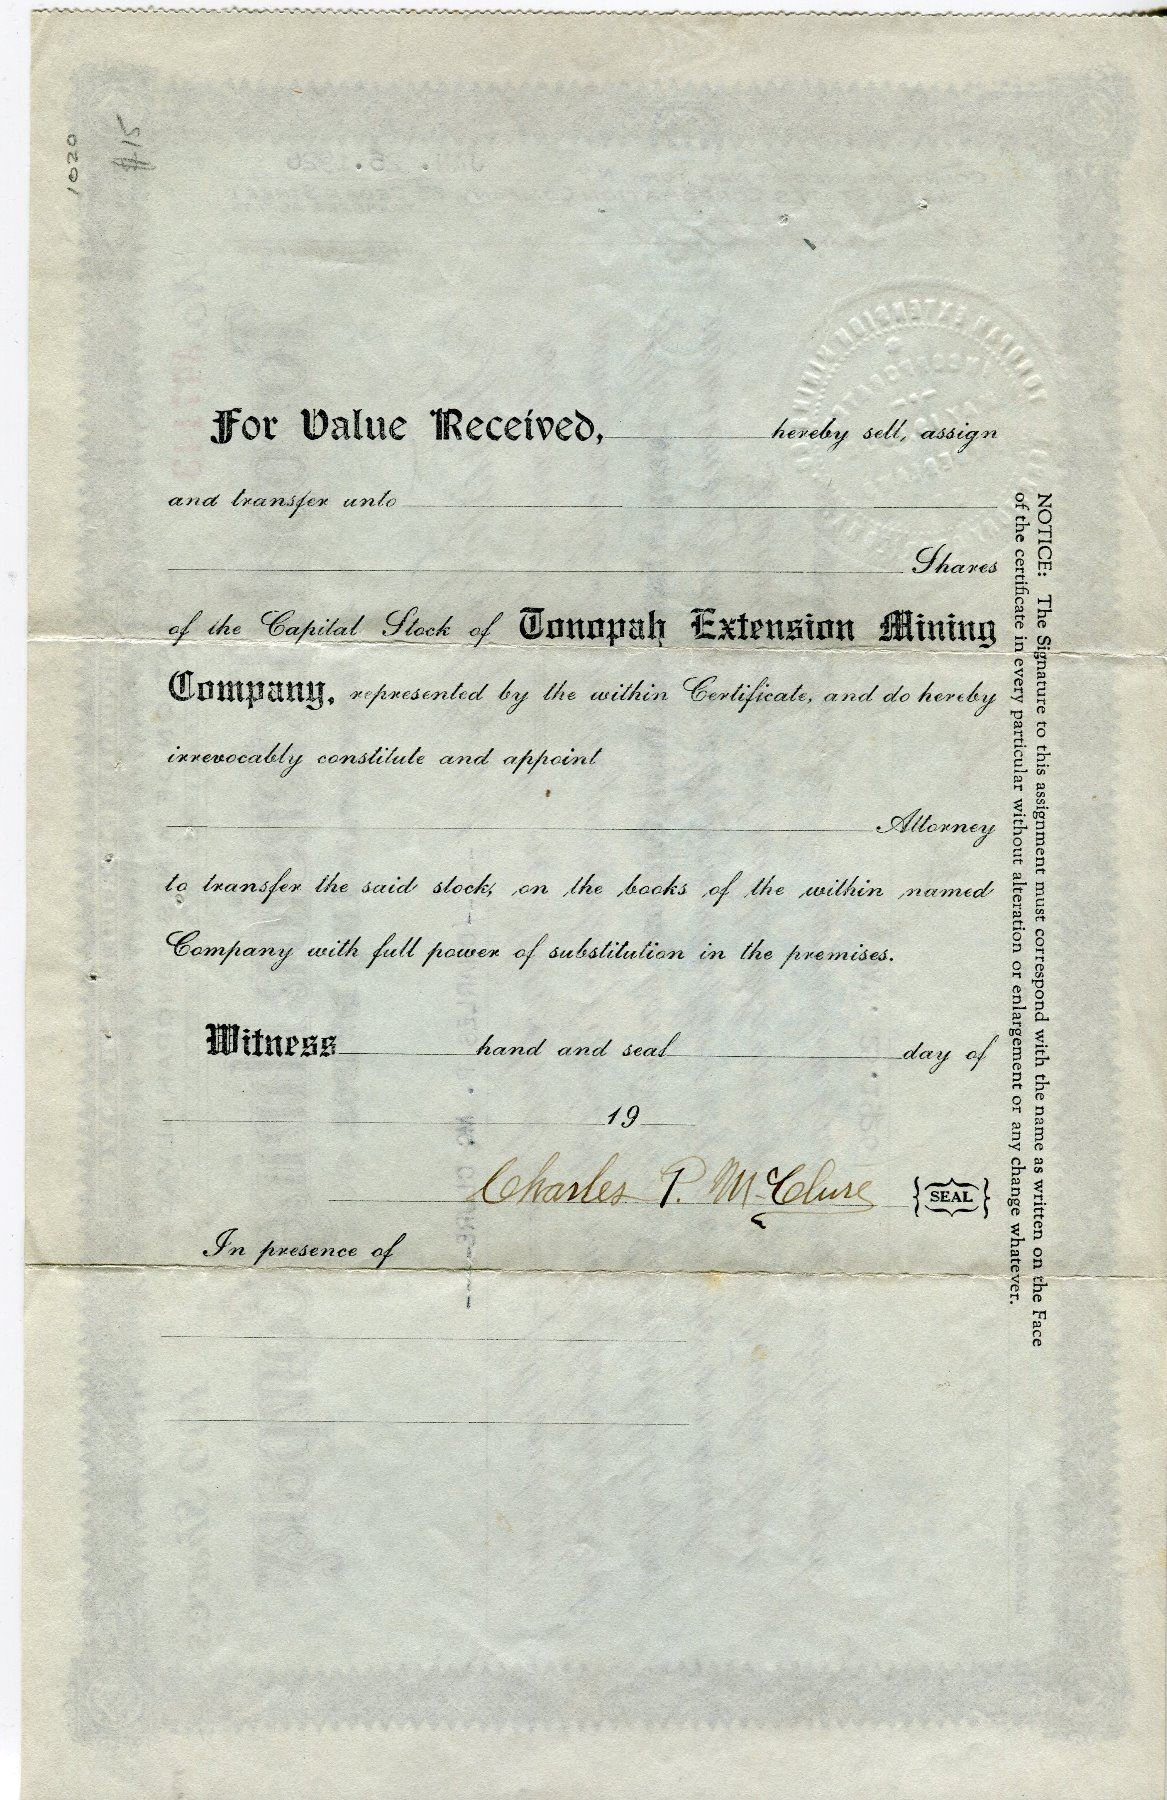 1020
#15
For Value Received, hereby sell, assign
and transfer unto
Shares
of the Capital Stock of Tonopah Extension Mining
Company, represented by the within Certificate, and do hereby
irrevocably constitute and appoint
Attorney
to transfer the said stock, on the books of the within named
Company with full power of substitution in the premises.
Witness hand and seal day of
19
Charles P. McClure SEAL
In presence of
NOTICE: The Signature to this assignment must correspond with the name as written on the Face
of the certificate in every particular without alteration or enlargement or any change whatever.